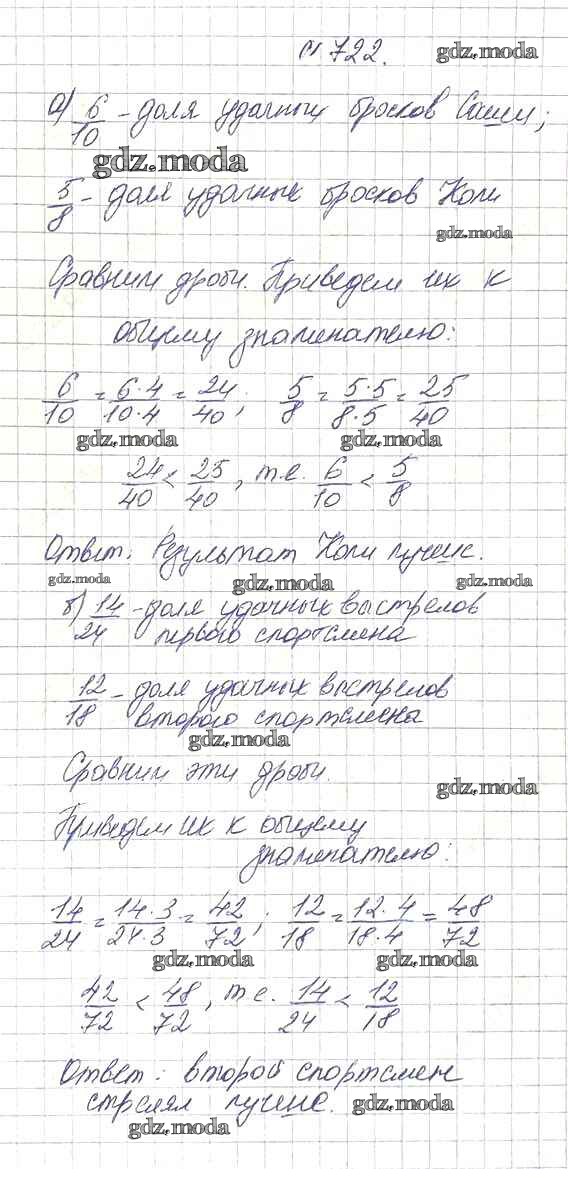 №722. gdz.moda
а) 6/10 - доля удачных бросков Саши;
gdz.moda
5/8 - доля удачных бросков Коли
gdz.moda
Сравним дроби. Приведем их к
общему знаменателю:
6/10 = 6·4/10·4 = 24/40; 5/8 = 5·5/8·5 = 25/40
gdz.moda gdz.moda
24/40 < 25/40, т.е. 6/10 < 5/8
Ответ: Результат Коли лучше.
gdz.moda gdz.moda gdz.moda
б) 14/24 - доля удачных выстрелов
первого спортсмена
12/18 - доля удачных выстрелов
второго спортсмена
gdz.moda
Сравним эти дроби.
gdz.moda
Приведем их к общему
знаменателю:
14/24 = 14·3/24·3 = 42/72; 12/18 = 12·4/18·4 = 48/72
gdz.moda gdz.moda
42/72 < 48/72, т.е. 14/24 < 12/18
Ответ: второй спортсмен
стрелял лучше. gdz.moda
gdz.moda